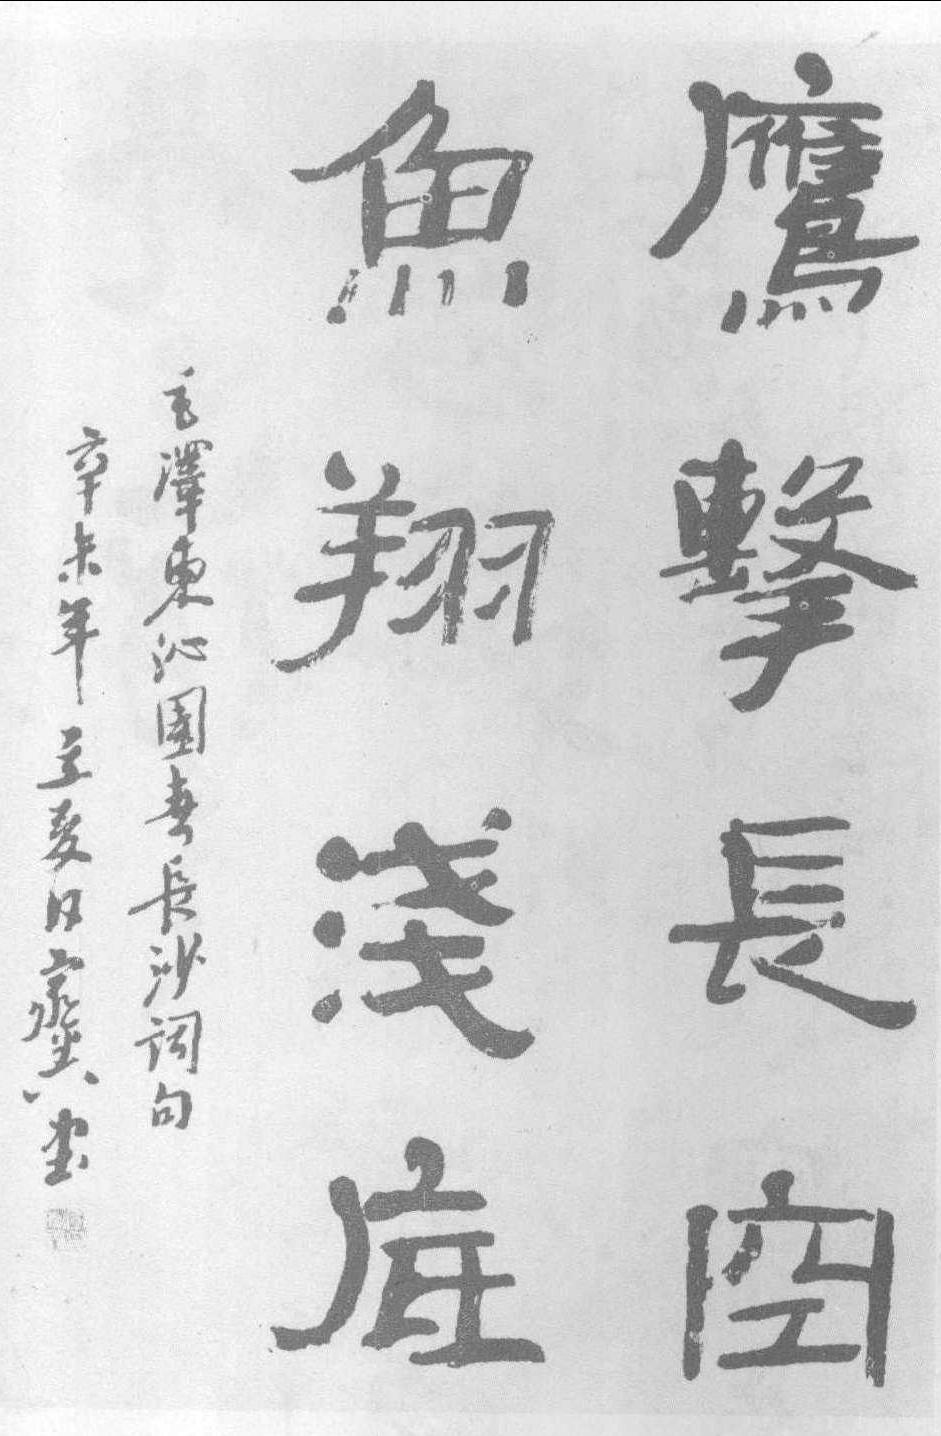 鷹擊長空
魚翔淺底
毛澤東沁園春長沙詞句
辛未年立夏日